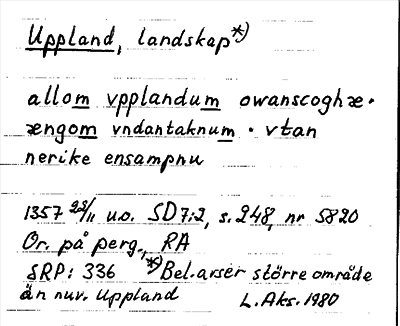 Uppland, landskap *)
allom vpplandum owanscoghæ·
ængom vndantaknum · vtan
nerike ensampnu
1357 28/11 u.o. SD7:2, s. 248, nr 5820
Or. på perg., RA
SRP: 336 *) Bel. avser större område
än nuv. Uppland L. Aks. 1980